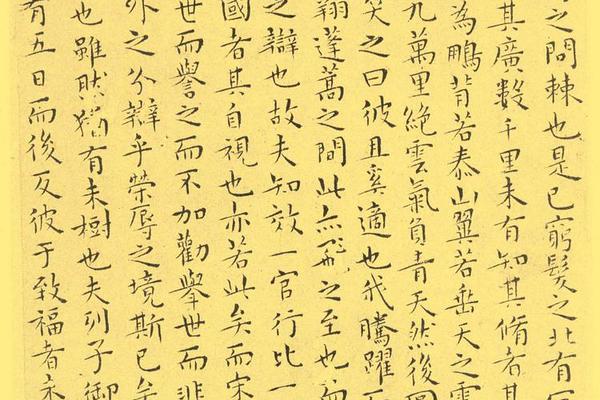 之問棘也是已窮髮之北有
其廣數千里未有知其脩者其
為鵬背若泰山翼若垂天之雲
九萬里絕雲氣負青天然後圖
笑之曰彼且奚適也我騰躍而
翔蓬蒿之間此亦飛之至也而
之辯也故夫知效一官行比一
國者其自視也亦若此矣而宋
世而譽之而不加勸舉世而非
外之分辯乎榮辱之境斯已矣
也雖然猶有未樹也夫列子御
有五日而後反彼于致福者未